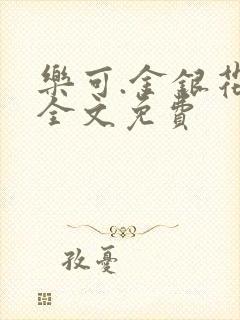 樂可.金銀花
全文免費
孜憂